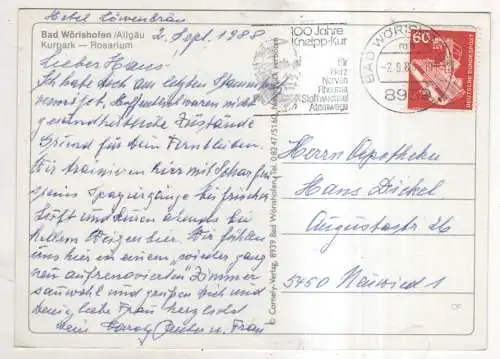 Hotel Löwenbräu
Bad Wörishofen/Allgäu
Kurpark — Rosarium
2. Sept. 1988
Lieber Hans!
Ich habe Dich am letzten Stammtisch
vermißt. Hoffentlich waren nicht
gesundheitliche Zustände
Grund für Dein Fernbleiben.
Wir trainieren hier mit Scharfen
Spaziergänge bei frischer
Luft und abends bei
hellem Weizenbier. Wir fühlen
uns hier in einem "wieder ganz
neu aufrenovierten" Zimmer
sauwohl und grüßen Dich und
Deine liebe Frau herzlichst
Dein u. Frau
© Cornely-Verlag, 8939 Bad Wörishofen, Tel. 08247/5160, Nachdruck verboten
100 Jahre
Kneipp-Kur
für
Herz
Nerven
Rheuma
Stoffwechsel
Atemwege
BAD WÖRISHOFEN
-2.9.88
8939
60
DEUTSCHE BUNDESPOST
Herrn Apotheker
Hans Dickel
5450 Neuwied 1